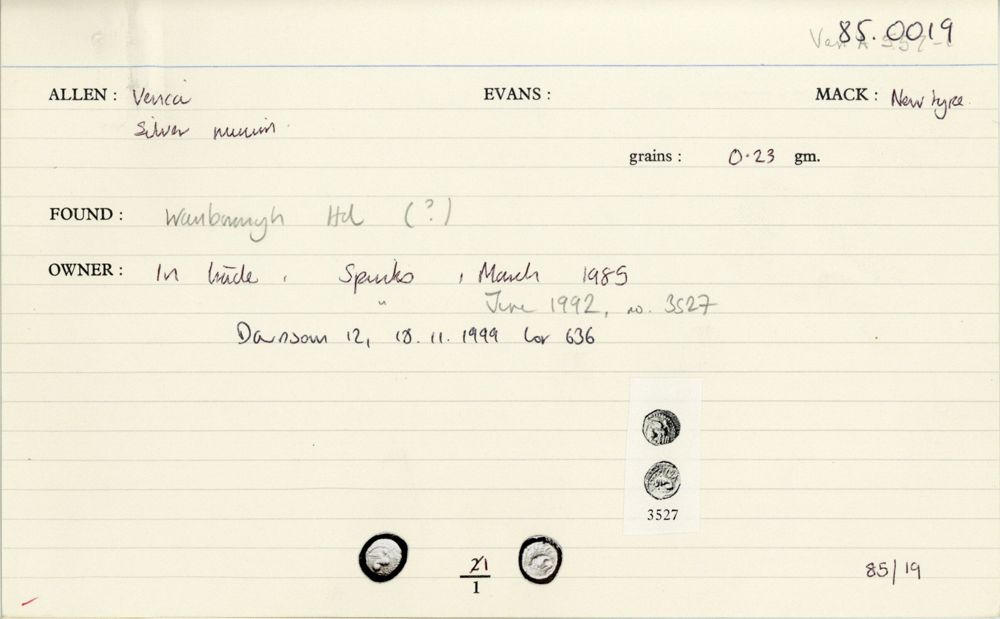 85.0019
ALLEN : Verica EVANS : MACK : New type.
Silver minim.
grains : 0.23 gm.
FOUND : Wanborough Hd (?)
OWNER : In trade, Spinks, March 1985
" June 1992, no. 3527
Davissons 12, 18.11.1999 lot 636
3527
21
1
85/19